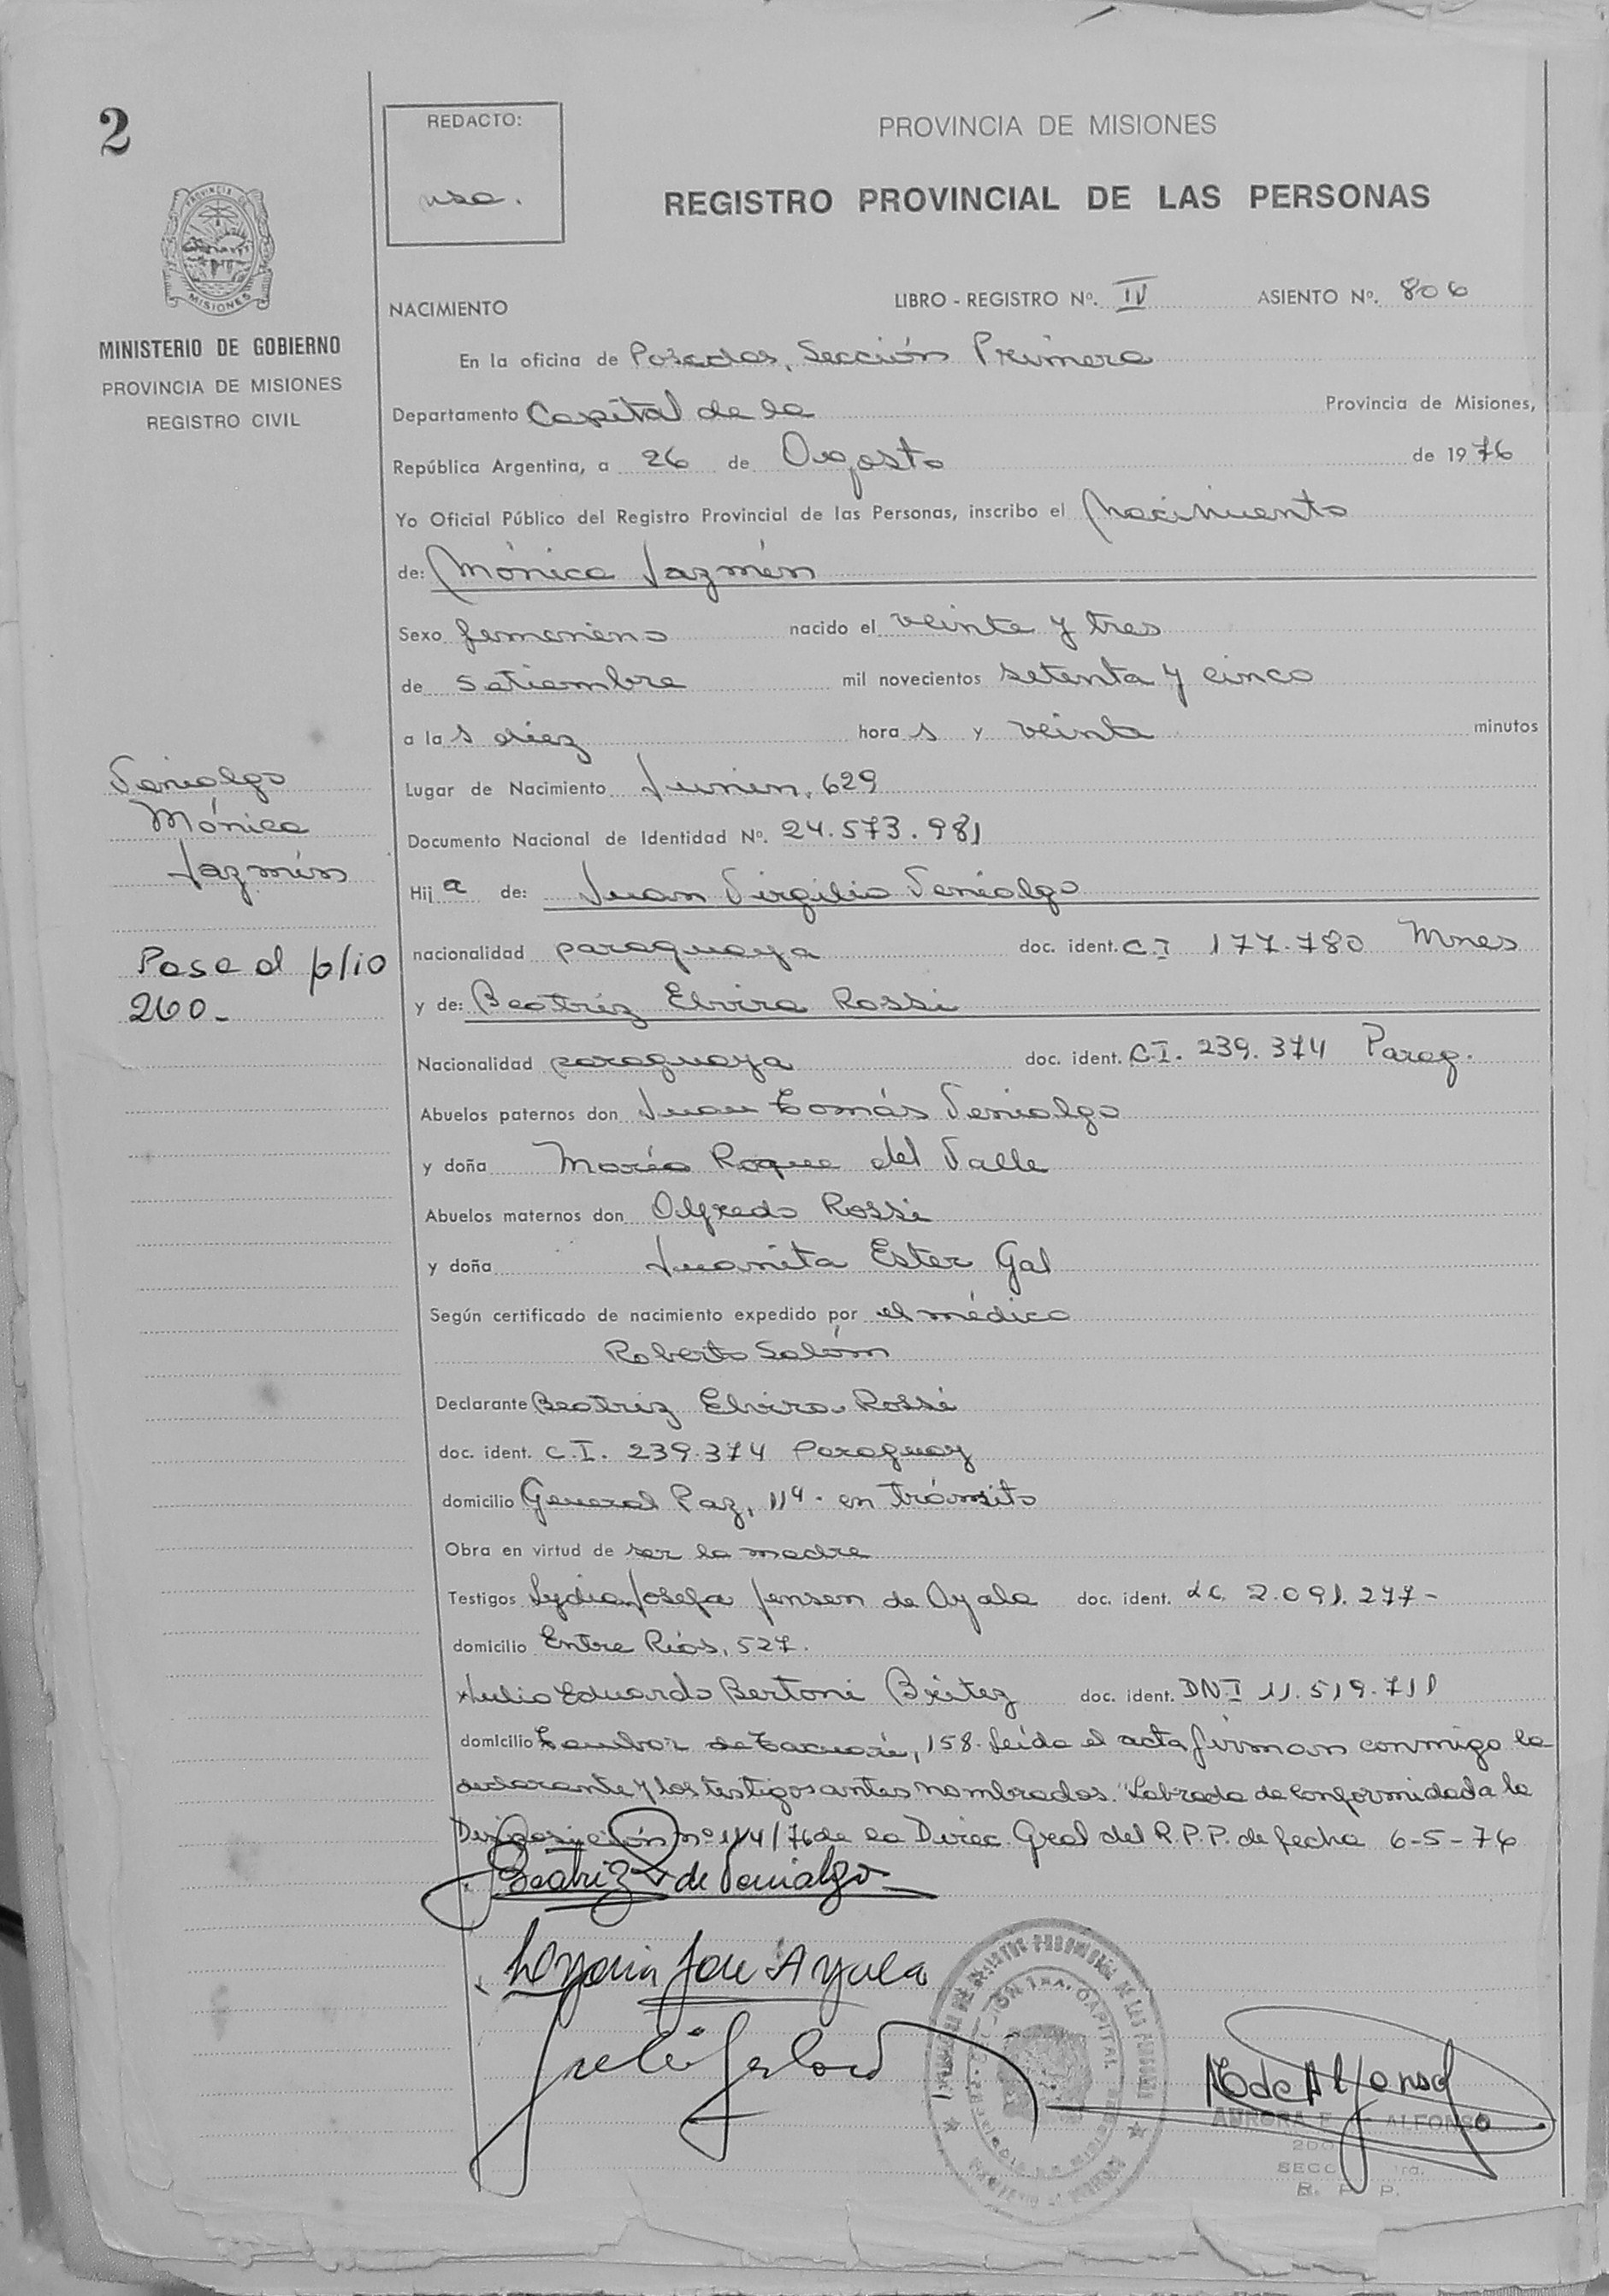 2
REDACTO:
PROVINCIA DE MISIONES
REGISTRO PROVINCIAL DE LAS PERSONAS
PROVINCIA DE
MISIONES
MINISTERIO DE GOBIERNO
PROVINCIA DE MISIONES
REGISTRO CIVIL
NACIMIENTO
LIBRO - REGISTRO Nº. IV ASIENTO Nº. 806
En la oficina de Posadas, Sección Primera
Departamento Capital de la Provincia de Misiones,
República Argentina, a 26 de Agosto de 1976
Yo Oficial Público del Registro Provincial de las Personas, inscribo el Nacimiento
de: Mónica Jazmín
Sexo femenino nacido el veinte y tres
de setiembre mil novecientos setenta y cinco
a las diez horas y veinte minutos
Lugar de Nacimiento Junin, 629
Documento Nacional de Identidad Nº. 24.573.981
Hija de: Juan Virgilio Venialgo
nacionalidad paraguaya doc. ident. C.I 177.780 Mnes
y de: Beatriz Elvira Rossi
Nacionalidad paraguaya doc. ident. C.I. 239.374 Parag.
Abuelos paternos don Juan Tomás Venialgo
y doña María Roque del Valle
Abuelos maternos don Alfredo Rossi
y doña Juanita Ester Gal
Según certificado de nacimiento expedido por el médico
Roberto Salóm
Declarante Beatriz Elvira Rossi
doc. ident. C.I. 239.374 Paraguay
domicilio General Paz, 114. en tránsito
Obra en virtud de ser la madre
Testigos Lydia Josefa Jensen de Ayala doc. ident. LC. 2.091.277-
domicilio Entre Ríos, 527.
Julio Eduardo Bertoni Bxitez doc. ident. DNI 11.519.711
domicilio Tambor de Tacuarí, 158. Leída el acta firman conmigo la
declarante y los testigos antes nombrados. "Labrada de conformidad a la
Disposición nº 114/76 de la Direc. Gral del R.P.P. de fecha 6-5-76
Beatriz de Venialgo
Ayala
AURORA E. ALFONSO
R. P. P.
Venialgo
Mónica
Jazmín
Pasa al folio
260-